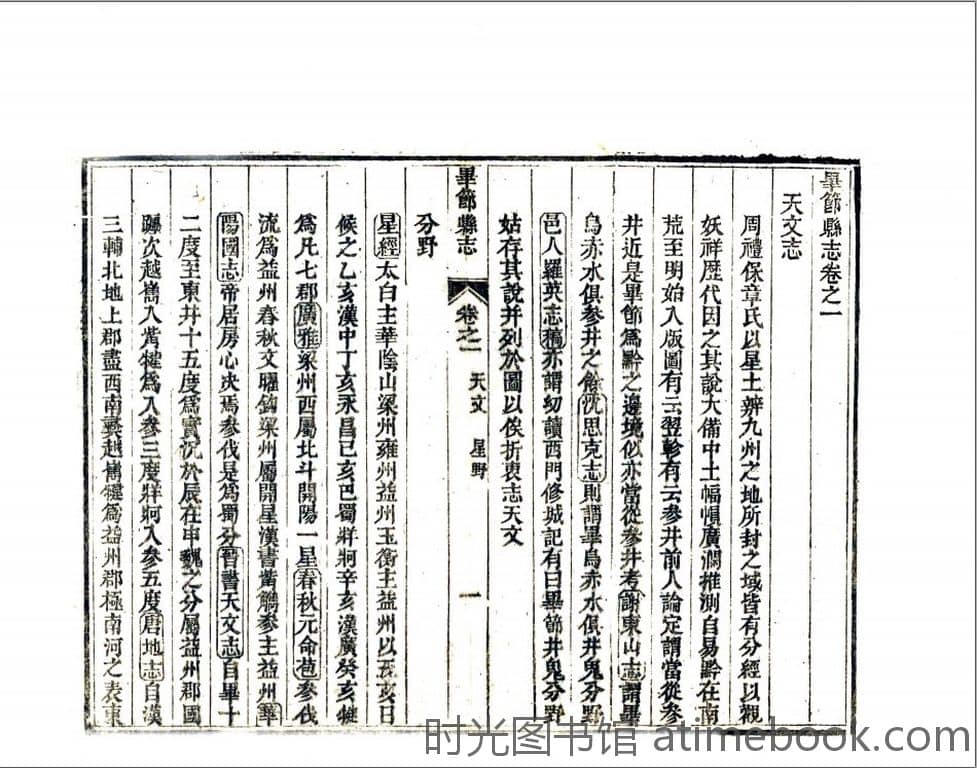 畢節縣志卷之一
天文志
周禮保章氏以星土辨九州之地所封之域皆有分經以觀
妖祥歷代因之其說大備中土幅幀廣濶推測自易黔在南
荒至明始入版圖有云翌軫有云參井前人論定謂當從參
井近是畢節爲黔之邊境似亦當從參井考謝東山志謂畢
烏赤水俱參井之餘沈思克志則謂畢烏赤水俱井鬼分野
邑人羅英志稿亦謂幼讀西門修城記有曰畢節井鬼分野
姑存其說并列於圖以俟折衷志天文
畢節縣志 卷之一 天文 星野 一
分野
星經太白主華陰山梁州雍州益州玉衡主益州以五亥日
候之乙亥漢中丁亥永昌己亥巴蜀牂牁辛亥漢廣癸亥犍
爲凡七郡廣雅梁州西屬北斗開陽一星春秋元命苞參伐
流爲益州春秋文曜鉤梁州屬開星漢書觜觿參主益州華
陽國志帝居房心決焉參伐是爲蜀分晉書天文志自畢十
二度至東井十五度爲實沉於辰在申魏之分屬益州郡國
躔次越嶲入觜犍爲入參三度牂牁入參五度唐地志自漢
三輔北地上郡盡西南夷越嶲犍爲益州郡極南河之表東
时光图书馆 atimebook.com